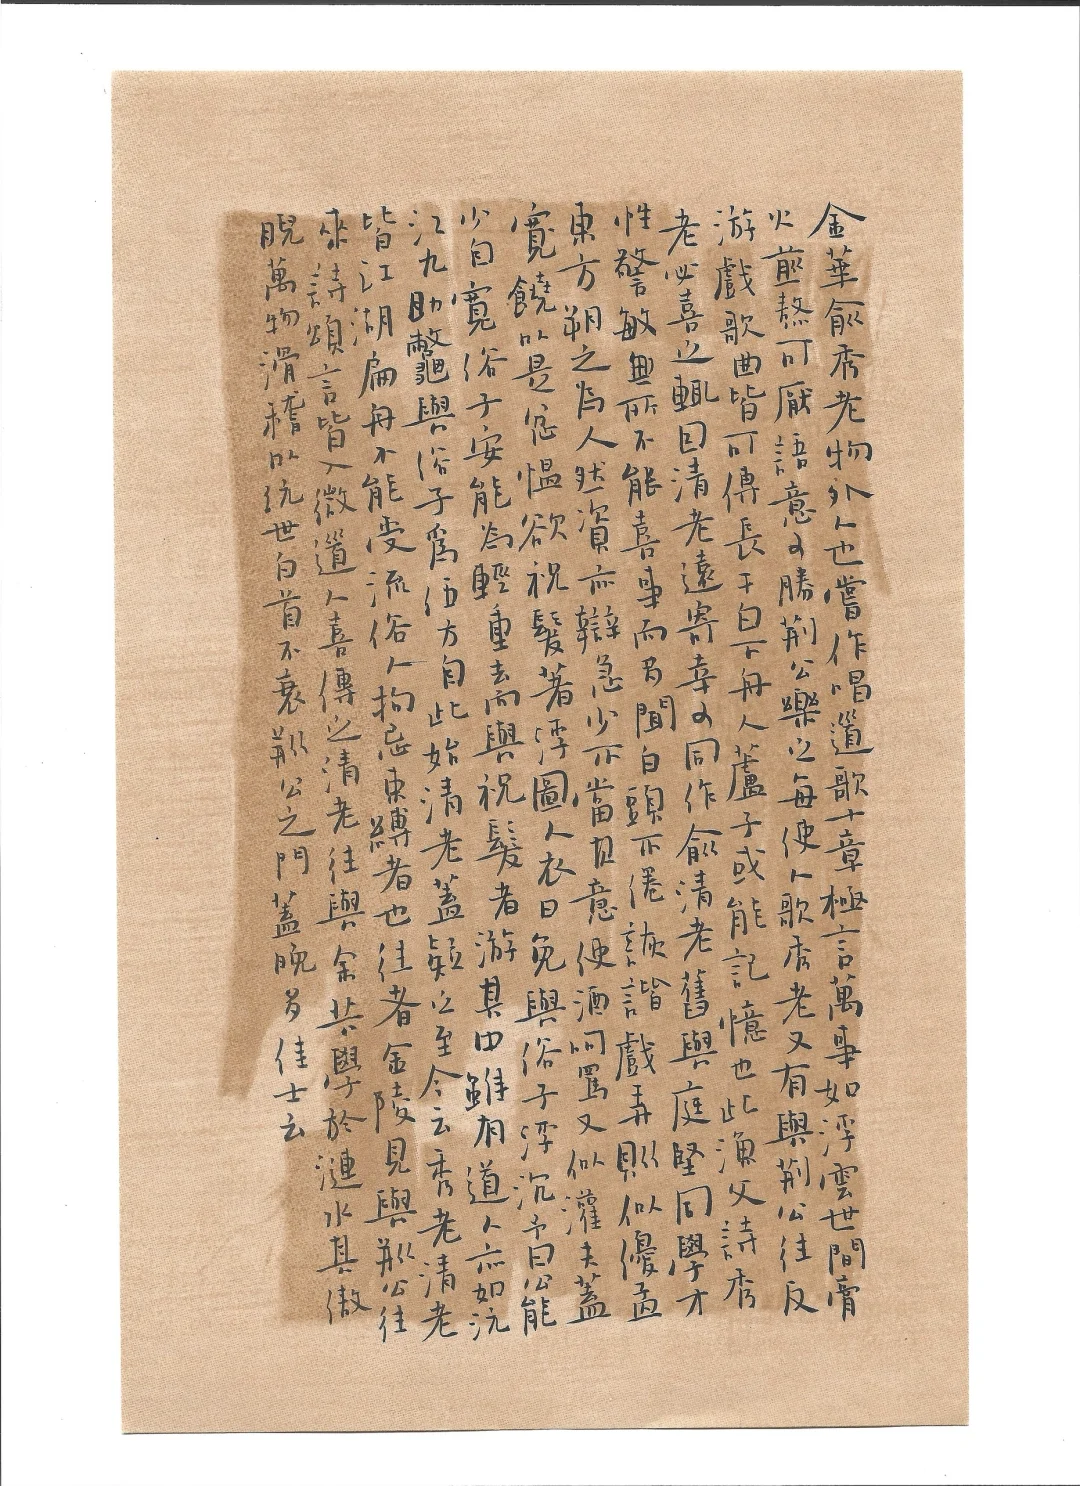 金華俞秀老物外人也嘗作唱道歌十章極言萬事如浮雲世間膏
火煎熬可厭語意又勝荊公樂之每使人歌秀老又有與荊公往反
游戲歌曲皆可傳長干白下舟人蘆子或能記憶也此漁父詩秀
老必喜之輒因清老遠寄幸又同作俞清老舊與庭堅同學才
性警敏無所不能喜事而多聞白頭不倦詼諧戲弄則似優孟
東方朔之為人然資亦辯急少不當其意使酒呵罵又似灌夫蓋
寬饒以是忿慍欲祝髮著浮圖人衣曰免與俗子浮沉予曰公能
少自寬俗子安能為輕重去而與祝髮者游其中雖有道人亦如沅
江九肋鼈與俗子為伍方自此始清老蓋疑之至今云秀老清老
皆江湖扁舟不能受流俗人拘忌束縛者也往者金陵見與荊公往
來詩頌言皆入微道人喜傳之清老往與余共學於漣水其傲
睨萬物滑稽以玩世白首不衰荊公之門蓋晚多佳士云